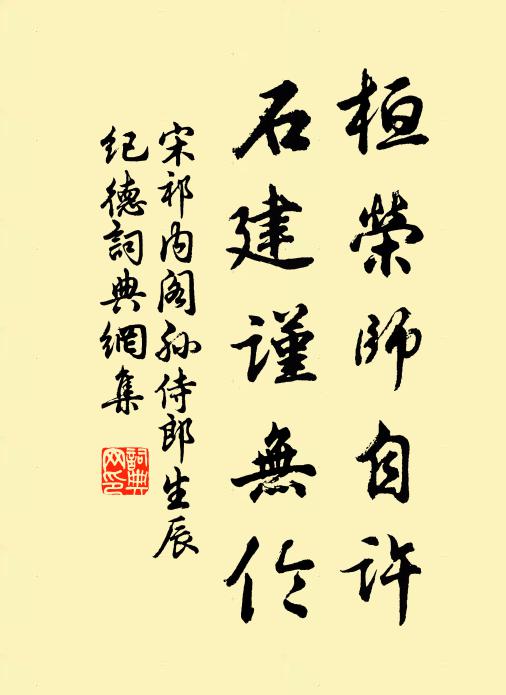 桓榮師自許
石建謹無伦
宋祁内阁孙侍郎生辰
紀德詞典網集
詞典网印